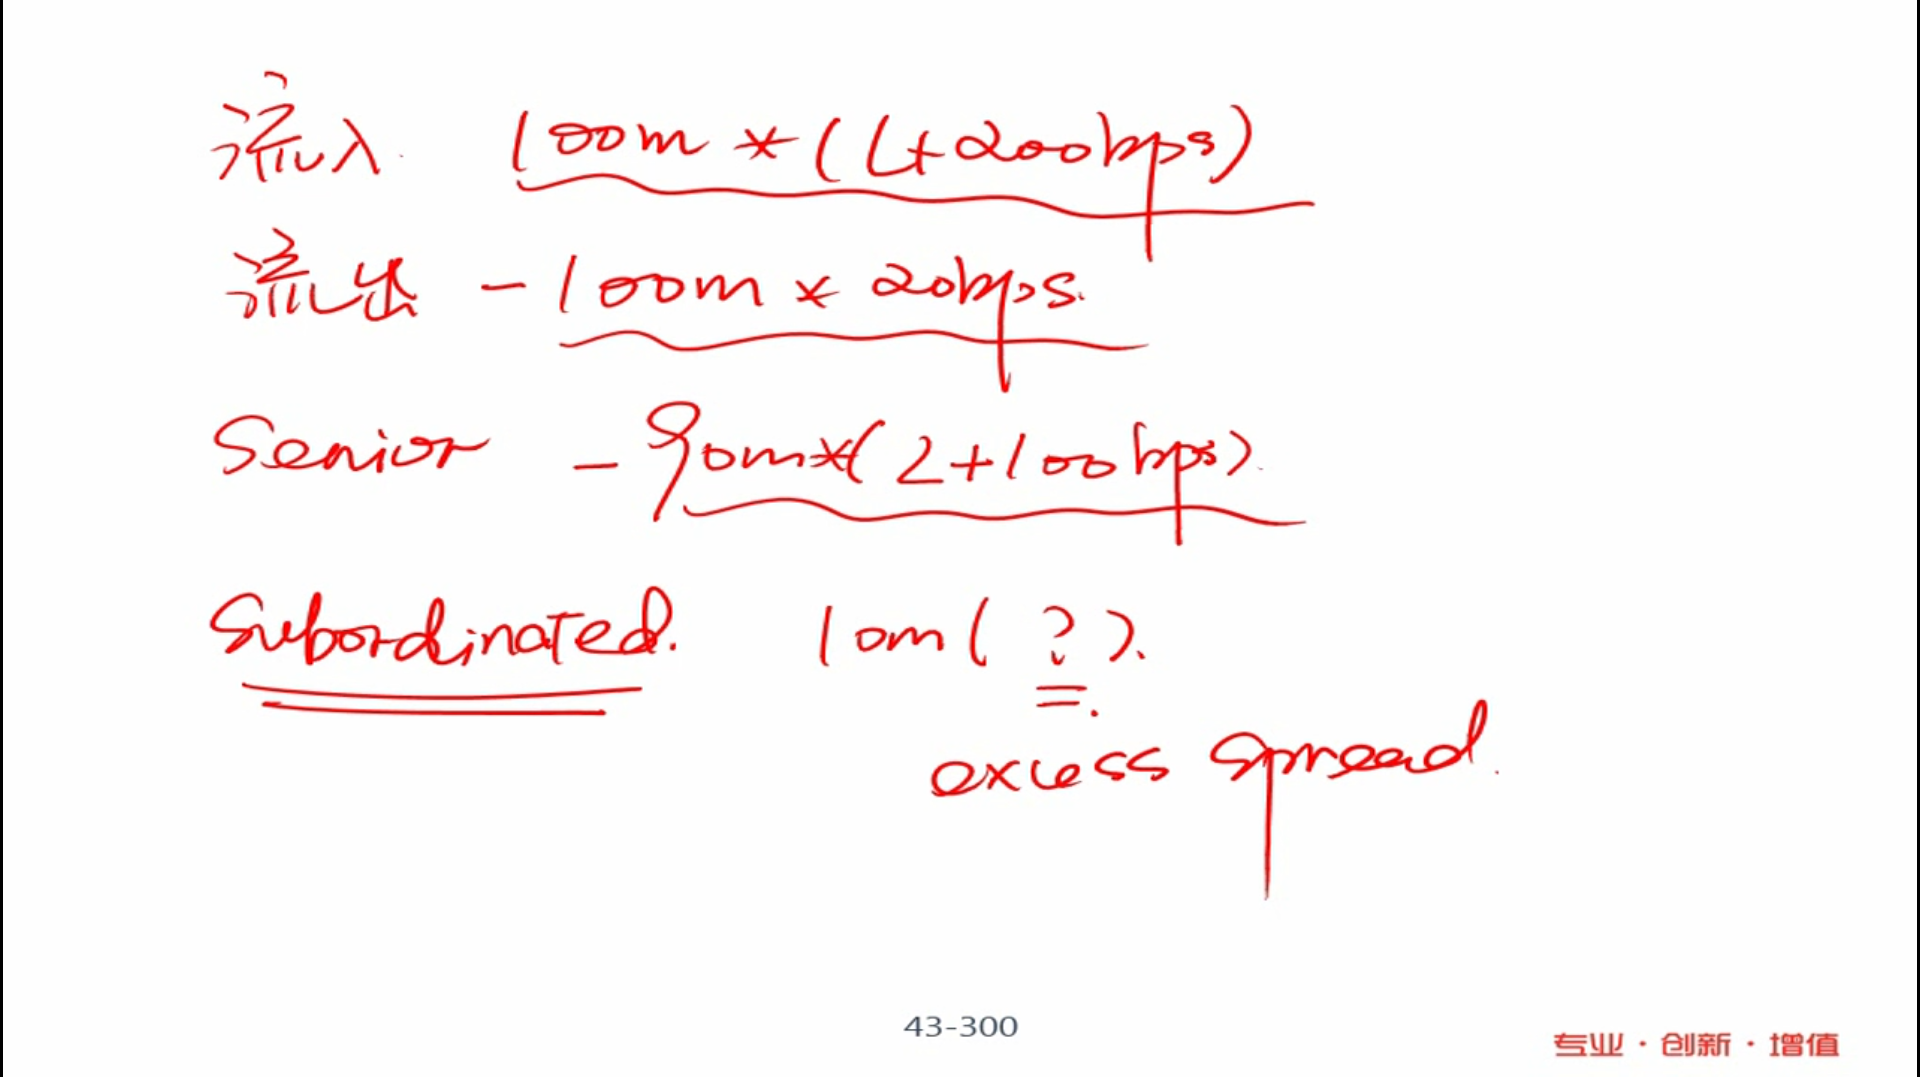 流入 100m * (L+200bps)
流出 -100m * 20bps.
Senior -90m*(L+100bps).
Subordinated. 10m( ? ).
excess spread.
43-300
专业·创新·增值